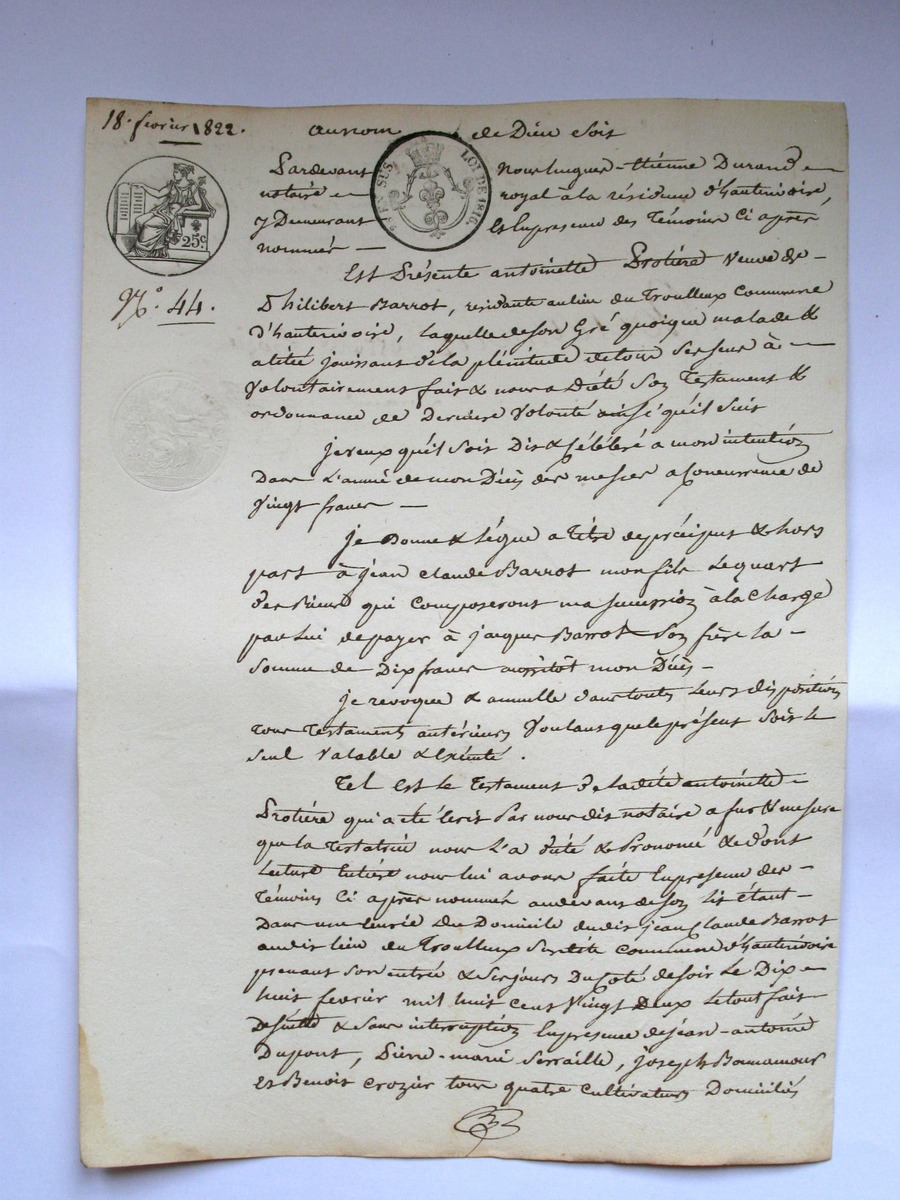 18. fevrier 1822.
au nom de Dieu Soit
Pardevant Nous hugue-Etiénne Durand
notaire royal à la résidence d'hauterivoire,
y Demeurant Et En presence des Témoins Ci après
nommés
25c.
EN SUS LOI DE 1816.
N.o 44.
Est Présente antoinette Protière Veuve de
Philibert Barrot, residante au lieu du Troulleux Commune
d'hauterivoire, laquelle de son Gré quoique malade &
alitée jouissant de la plénitude de tous Ses sens à
Volontairement fait & nous a Dicté Son Testament &
ordonnance de Derniere Volonté ainsi qu'il Suit
je veux qu'il Soit Dit & Célébré a mon intention
Dans L'année de mon Décès des messes a Concurrence de
Vingt francs
je Donne & lègue a titre de préciput & hors
part à jean Claude Barrot mon fils Le quart
des Biens qui Composeront ma Succession à la Charge
par Lui de payer à jacques Barrot Son frère la
Somme de Dix francs aussitôt mon Décès
je revoque & annulle dans toutes Leurs dispositions
tous Testaments antérieurs Voulant que le présent Soit le
Seul Valable & Exécuté.
Tel est le Testament de ladite antoinette
Protière qui a été Ecrit Par nous dit notaire a fur & mesure
que la Testatrice nous L'a dicté & Prononcé & dont
Lecture Entière nous lui avons faite En presence des
Témoins Ci après nommés au devant de son lit étant
Dans une Du Domicile dudit jean Claude Barrot
audit lieu du Troulleux Susdite Commune d'hauterivoire
prenant Son entrée & Ses jours Du Coté de soir Le Dix
huit fevrier mil huit cent Vingt Deux Le tout fait
De suite & Sans interruption En presence de jean-antoine
Dupont, Pierre-marie Serraille, joseph Bonnamour
Et Benoit Crozier tous quatre Cultivateurs Domiciliés